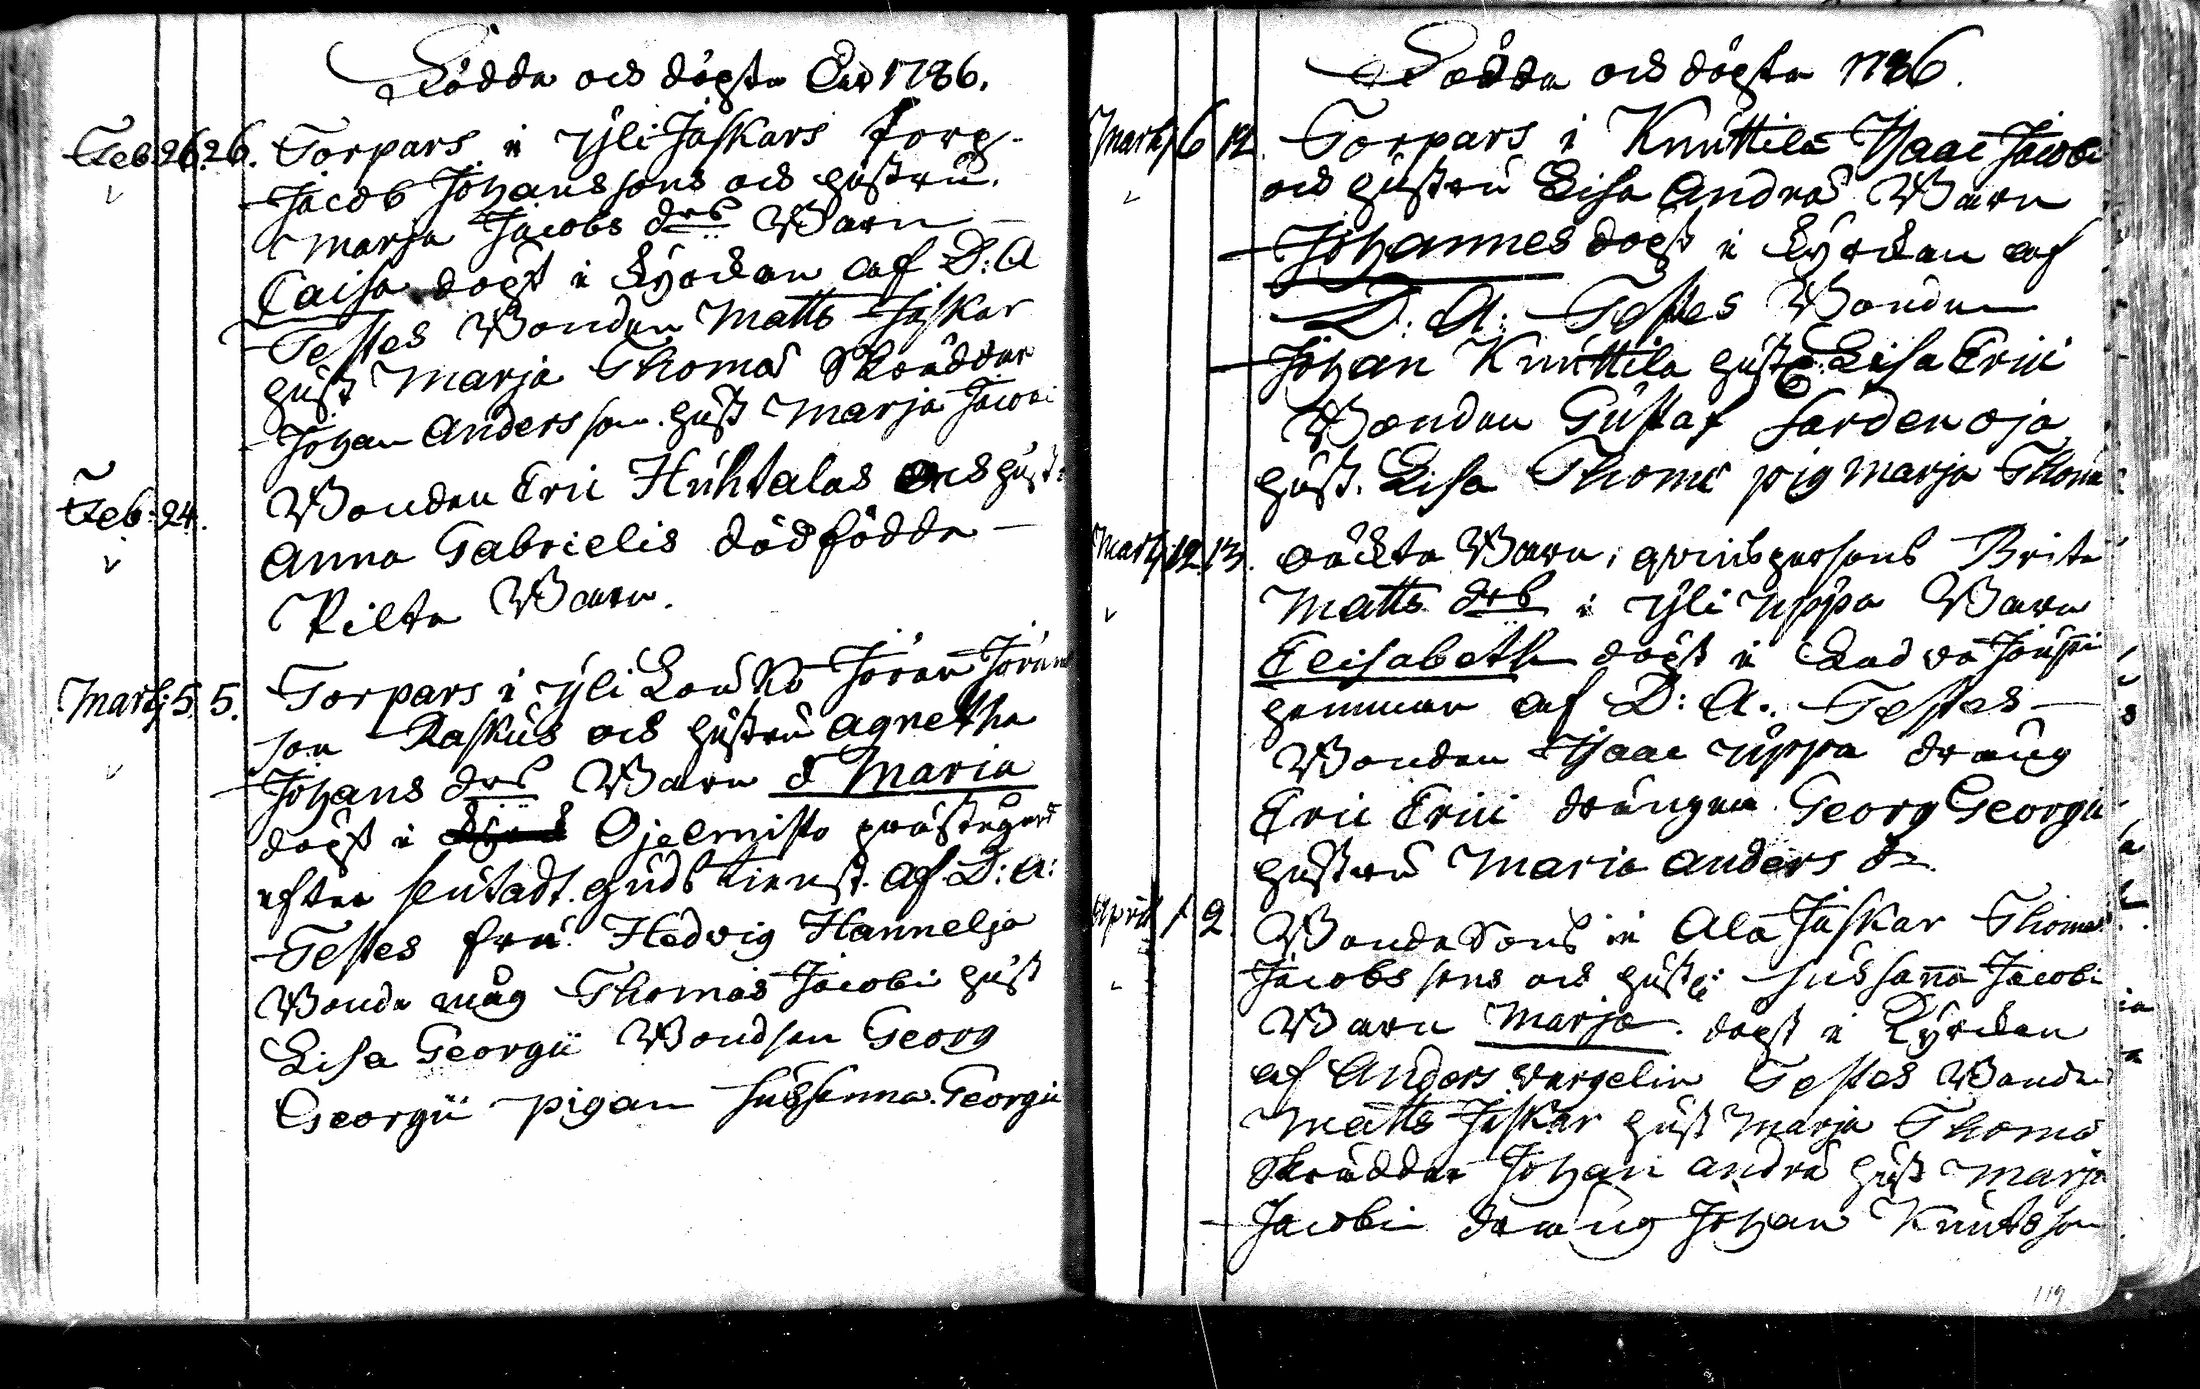 Födda och döpta Åhr 1786.
Feb: 26. 26. Torpars i Yli Jaskars torp
Jacob Johanssons och hustru
Marja Jacobs drs Barn
Caisa döpt i Kyrckan af D: A
Testes Bonden Matts Jaskar
hust Marja Thomæ Skräddar
Johan Andersson. hust Marja Jacobi
Feb: 24. Bonden Eric Huhtalas och hust:
Anna Gabrielis dödfödda
Pilta Barn.
Martij 5. 5. Torpars i Yli Lauko Jöran Jörans
son Raskus och hustru Agnetha
Johans drs Barn d Maria
döpt i Ojelmisto prästegård
efter slutadt. gudstienst. af D: A:
Testes fru Hedvig Hannelja
Bonde måg Thomas Jacobi hust
Lisa Georgii Bondson Georg
Georgii pigan Sussanna Georgii
Födda och döpta 1786.
Martij 6 12. Torpars i Knuttila Isaac Jacobi
och hustru Lisa Andræ Barn
Johannes döpt i Kyrckan af
D: A: Testes Bonden
Johan Knuttila hust: Lisa Erici
Bonden Gustaf Sardenoja
hust. Lisa Thomæ pig Marja Thomæ
Martij 12. 13. oäckta Barn, qvinspersons Brita
Matts drs i Yli Uppa Barn
Elisabeth döpt i
hemman af D: A. Testes
Bonden Isaac Uppa dräng
Eric Erici drängen Georg Georgii
hustru Maria Anders d
April 1 2. Bonde Sons i Ala Jaskar Thomas
Jacobs sons och hust: Susanna Jacobi
Barn Marja. döpt i Kyrckan
af Anders Vergelin Testes Bonden
Matts Jaskar hust Marja Thomæ
Skräddar Johan Andræ hust Marja
Jacobi dräng Johan Knutsson
119